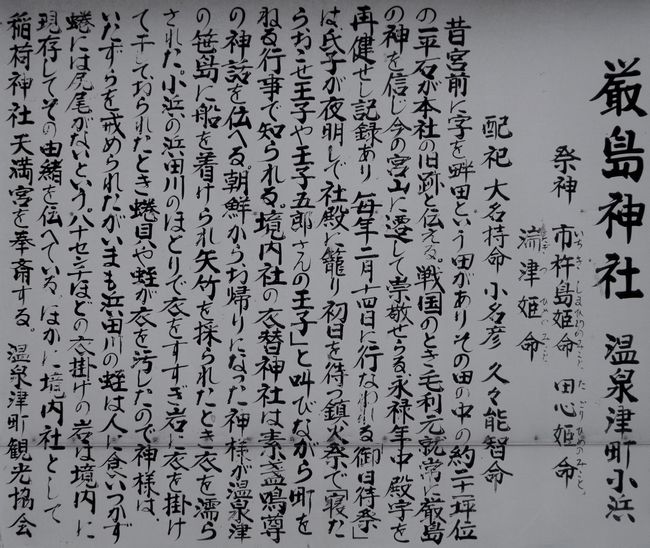 厳島神社 温泉津町小浜
祭神 市杵島姫命 田心姫命
いちきしまひめのみこと たごりひめのみこと
湍津姫命
たぎつひめのみこと
配祀 大名持命 小名彦 久々能智命
昔宮前に字を畔田という田がありその田の中の約二十一坪位
の一平石が本社の旧跡と伝える。戦国のとき毛利元就常に厳島
の神を信じ今の宮山に遷して崇敬せらる、永禄年中殿宇を
再健せし記録あり 毎年二月十四日に行なわれる「御日待祭」
は氏子が夜明しで社殿に籠り初日を待つ鎮火祭で「寝た
らおこせ王子や王子五郎さんの王子」と叫びながら町を
ねる行事で知られる。境内社の衣替神社は素盞鳴尊
の神話を伝へる。朝鮮からお帰りになった神様が温泉津
の笹島に船を着けられ矢竹を採られたとき衣を濡ら
された。小浜の浜田川のほとりで衣をすすぎ岩に衣を掛け
て干しておられたとき蜷貝や蛭が衣を汚したので神様は、
いたずらを戒められたがいまも浜田川の蛭は人に食いつかず
蜷には尻尾がないという八十センチほどの衣掛けの岩は境内に
現存してその由緒を伝へている、ほかに境内社として
稲荷神社 天満宮を奉斎する。 温泉津町観光協会